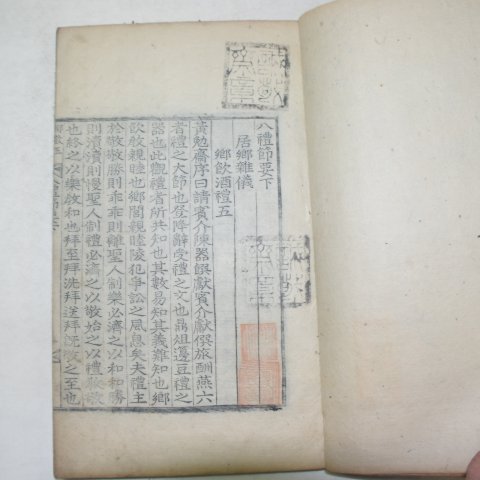 八禮節要下
居鄉雜儀
鄉飮酒禮五
黃勉齋序曰請賓介陳器饌獻賓介獻僎旅酬燕六
者禮之大節也登降辭受禮之文也鼎俎籩豆禮之
器也此觀禮者所共知也其數易知其義難知也鄉
飮敎親睦也鄕閭親睦陵犯爭訟之風息矣夫禮主
於敬敬勝則乖乖則離聖人制樂必濟之以和和勝
則瀆瀆則慢聖人制禮必濟之以敬始之以禮敬
也終之以樂致和也拜至拜洗拜送拜旣敬之至也